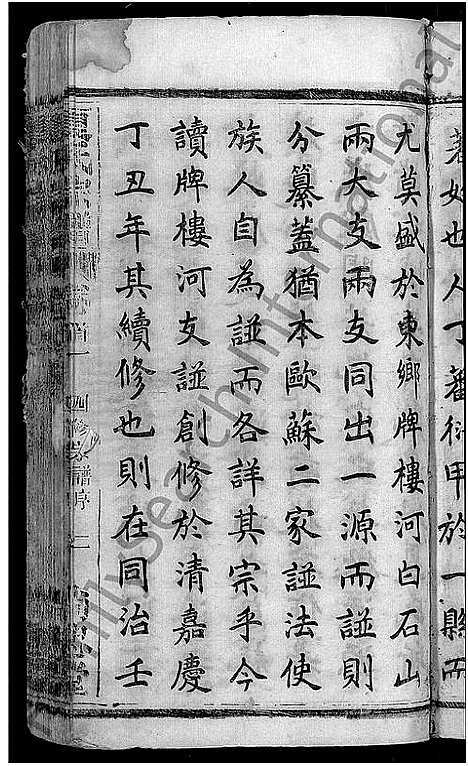 著如也人丁蕃衍甲於一縣而
尤莫盛於東鄉牌樓河白石山
兩大支兩支同出一源而諩則
分纂蓋猶本歐蘇二家諩法使
族人自為諩而各詳其宗乎今
讀牌樓河支諩創修於清嘉慶
丁丑年其續修也則在同治壬
四修宗譜序 二